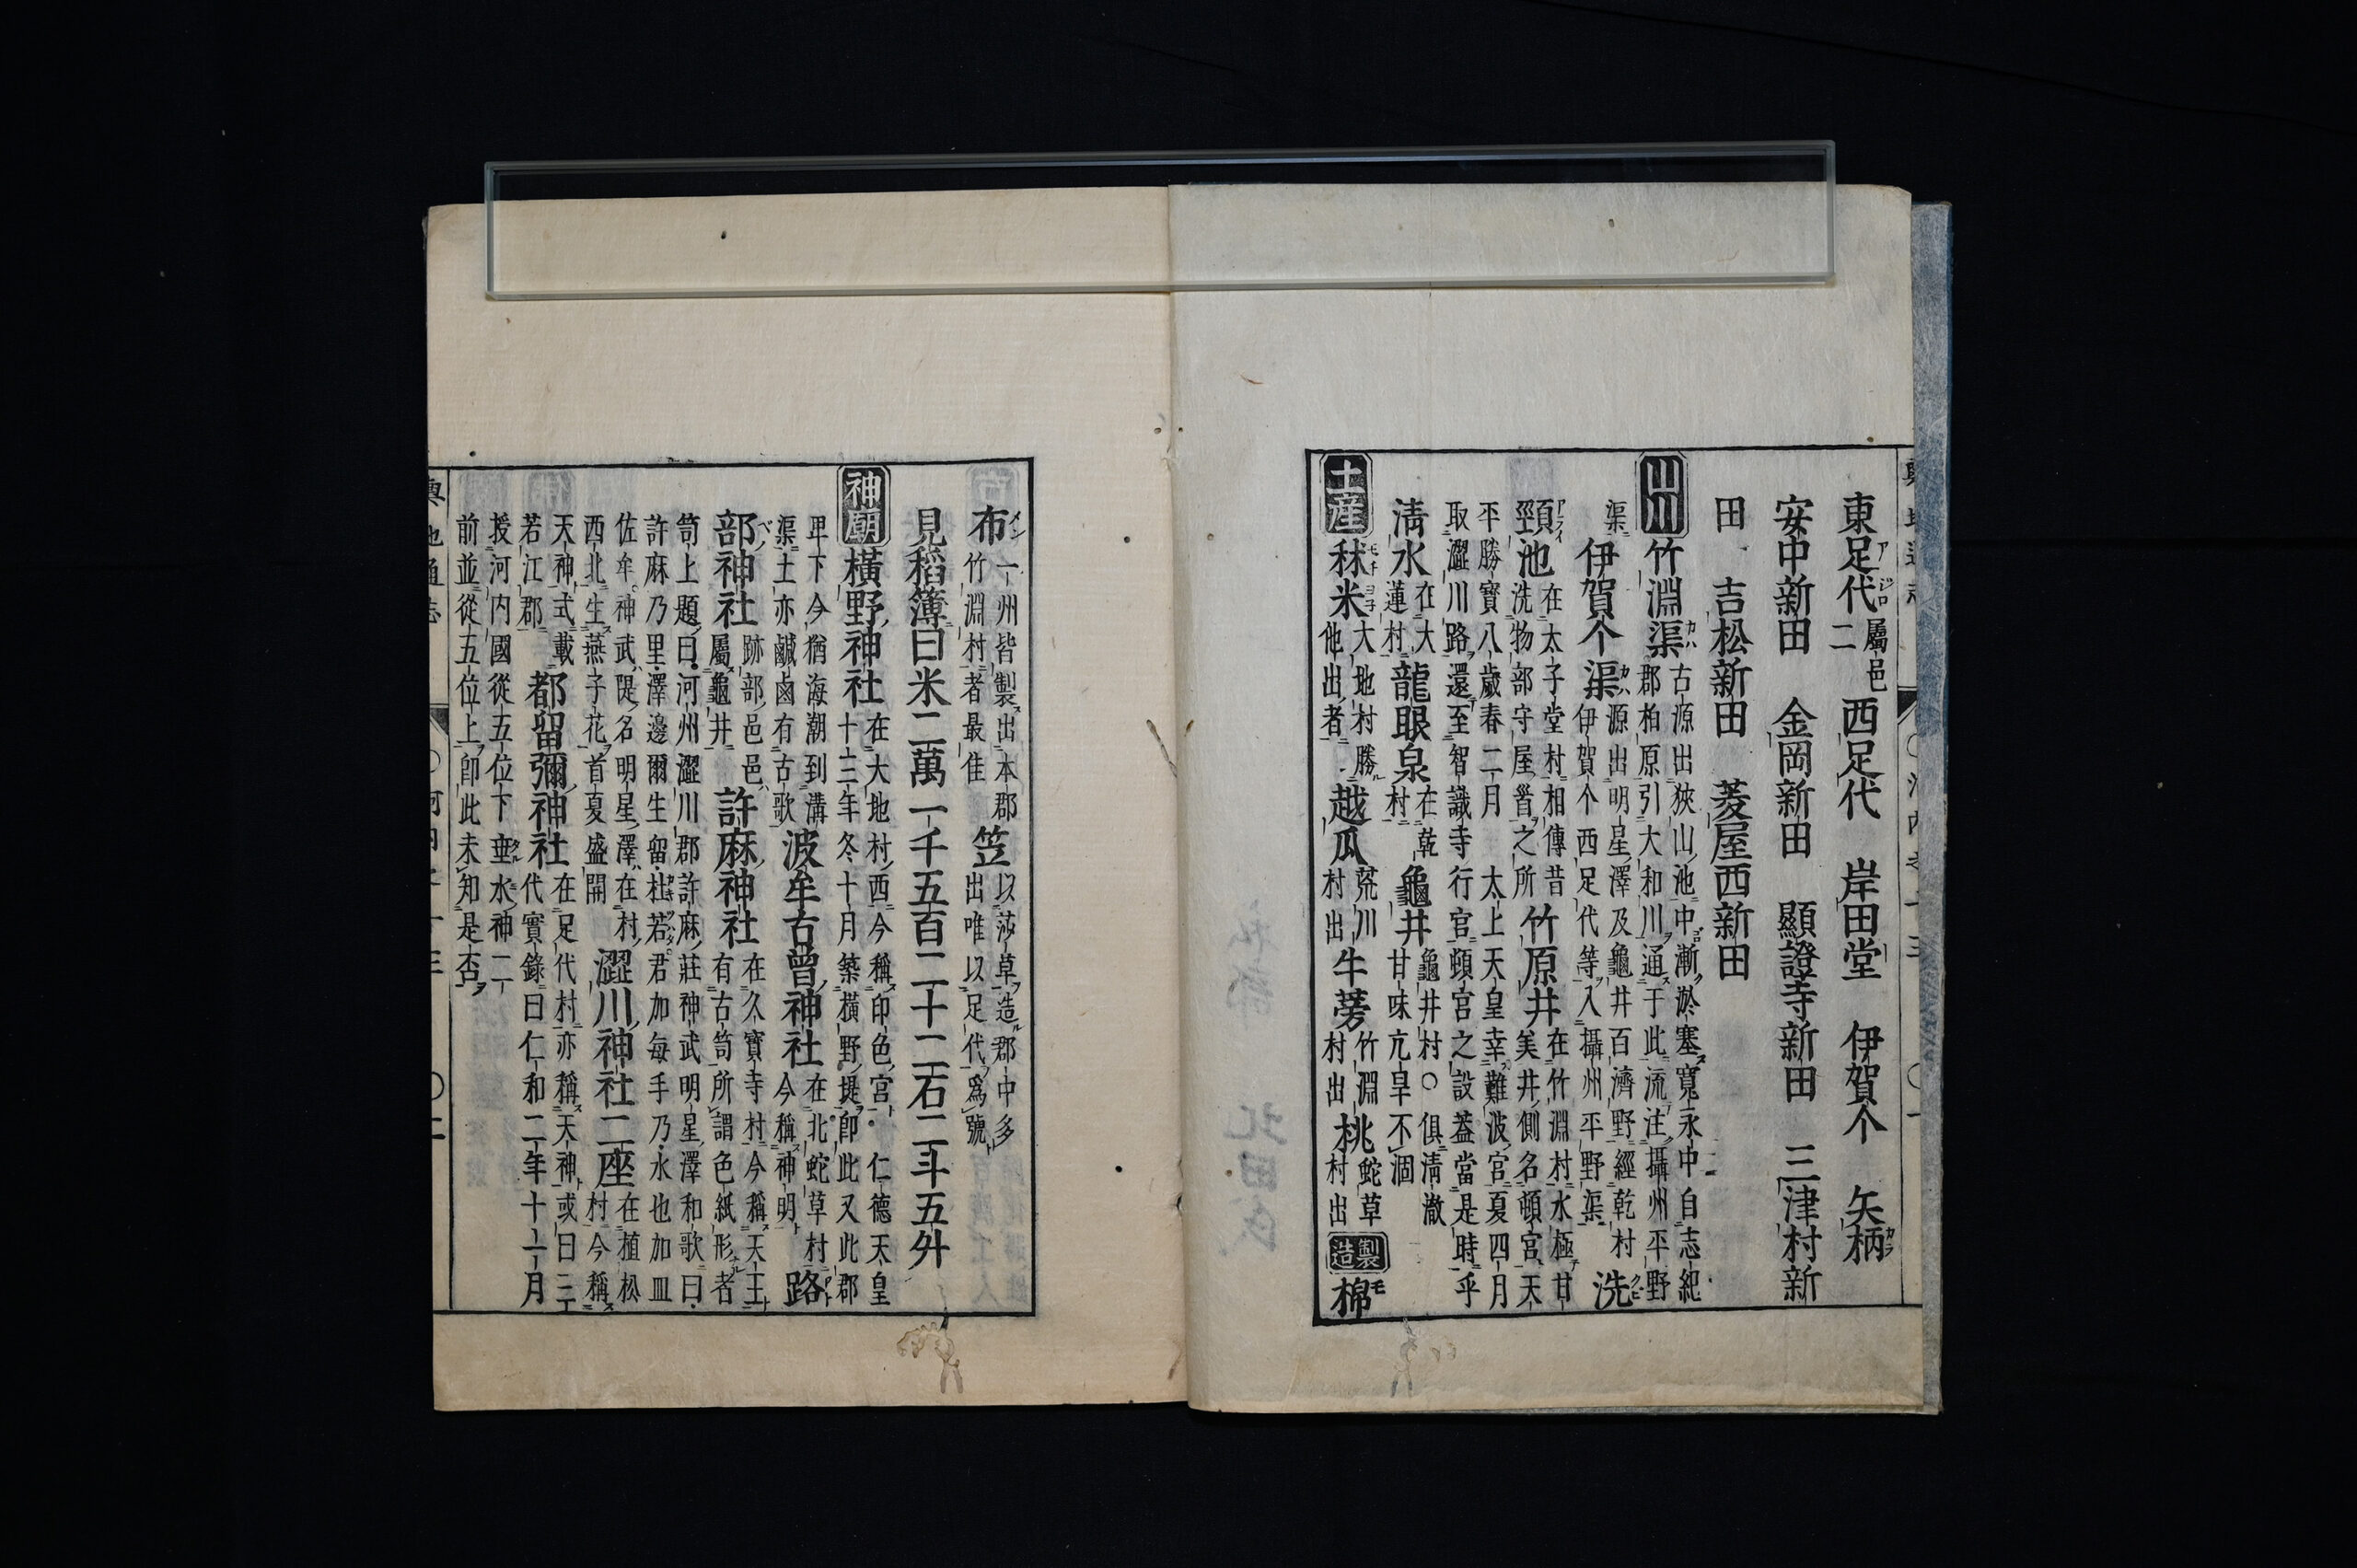 東足代二屬邑 西足代 岸田堂 伊賀个 矢柄
安中新田 金岡新田 顯證寺新田 三津村新
田 吉松新田 菱屋西新田
山川 竹淵渠 古源出狹山池中漸淤塞寬永中自志紀
郡柏原引大和川通于此流注攝州平野
渠 伊賀个渠 源出明星澤及龜井百濟野經乾村
伊賀个西足代等入攝州平野渠 洗
頸池 在太子堂村相傳昔
洗物部守屋首之所 竹原井 在竹淵村水極甘
美井側名頓宮天
平勝寶八歲春二月 太上天皇幸難波宮夏四月
取澀川路還至智識寺行宮頓宮之設蓋當是時乎
淸水 在大
蓮村 龍眼泉 在乾
村 龜井 龜井村○俱淸澈
甘味亢旱不涸
土產 秫米 大地村勝
他出者 越瓜 荒川
村出 牛蒡 竹淵
村出 桃 蛇草
村出 製造 棉
布 一州皆製出本郡
竹淵村者最佳 笠 以莎草造郡中多
出唯以足代爲號
見稻簿曰米二萬一千五百二十二石二斗五升
神廟 橫野神社 在大地村西今稱印色宮 仁德天皇
十三年冬十月築橫野堤卽此又此郡
卑下今猶海潮到溝
渠土亦鹹鹵有古歌 波牟古曾神社 在北蛇草村
今稱神明 路
部神社 跡部邑邑
屬龜井 許麻神社 在久寶寺村今稱天王
有古笥所謂色紙形者
笥上題曰河州澀川郡許麻莊神武明星澤和歌曰
許麻乃里澤邊爾生留杜若君加每手乃水也加皿
佐牟神武隄名明星澤在村
西北生燕子花首夏盛開 澀川神社二座 在植松
村今稱
天神式載
若江郡 都留彌神社 在足代村亦稱天神或曰三
代實錄曰仁和二年十一月
授河內國從五位下垂水神二
前並從五位上卽此未知是否